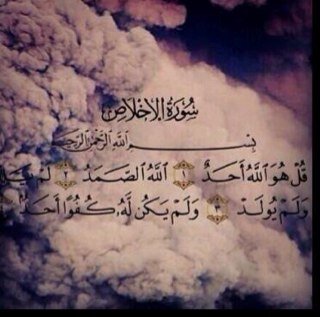 سُورَةُ الإِخْلَاصِ
بِسْمِ ٱللَّهِ ٱلرَّحْمَٰنِ ٱلرَّحِيمِ
قُلْ هُوَ ٱللَّهُ أَحَدٌ ١ ٱللَّهُ ٱلصَّمَدُ ٢ لَمْ يَلِ
وَلَمْ يُولَدْ ٣ وَلَمْ يَكُن لَّهُۥ كُفُوًا أَحَدٌ